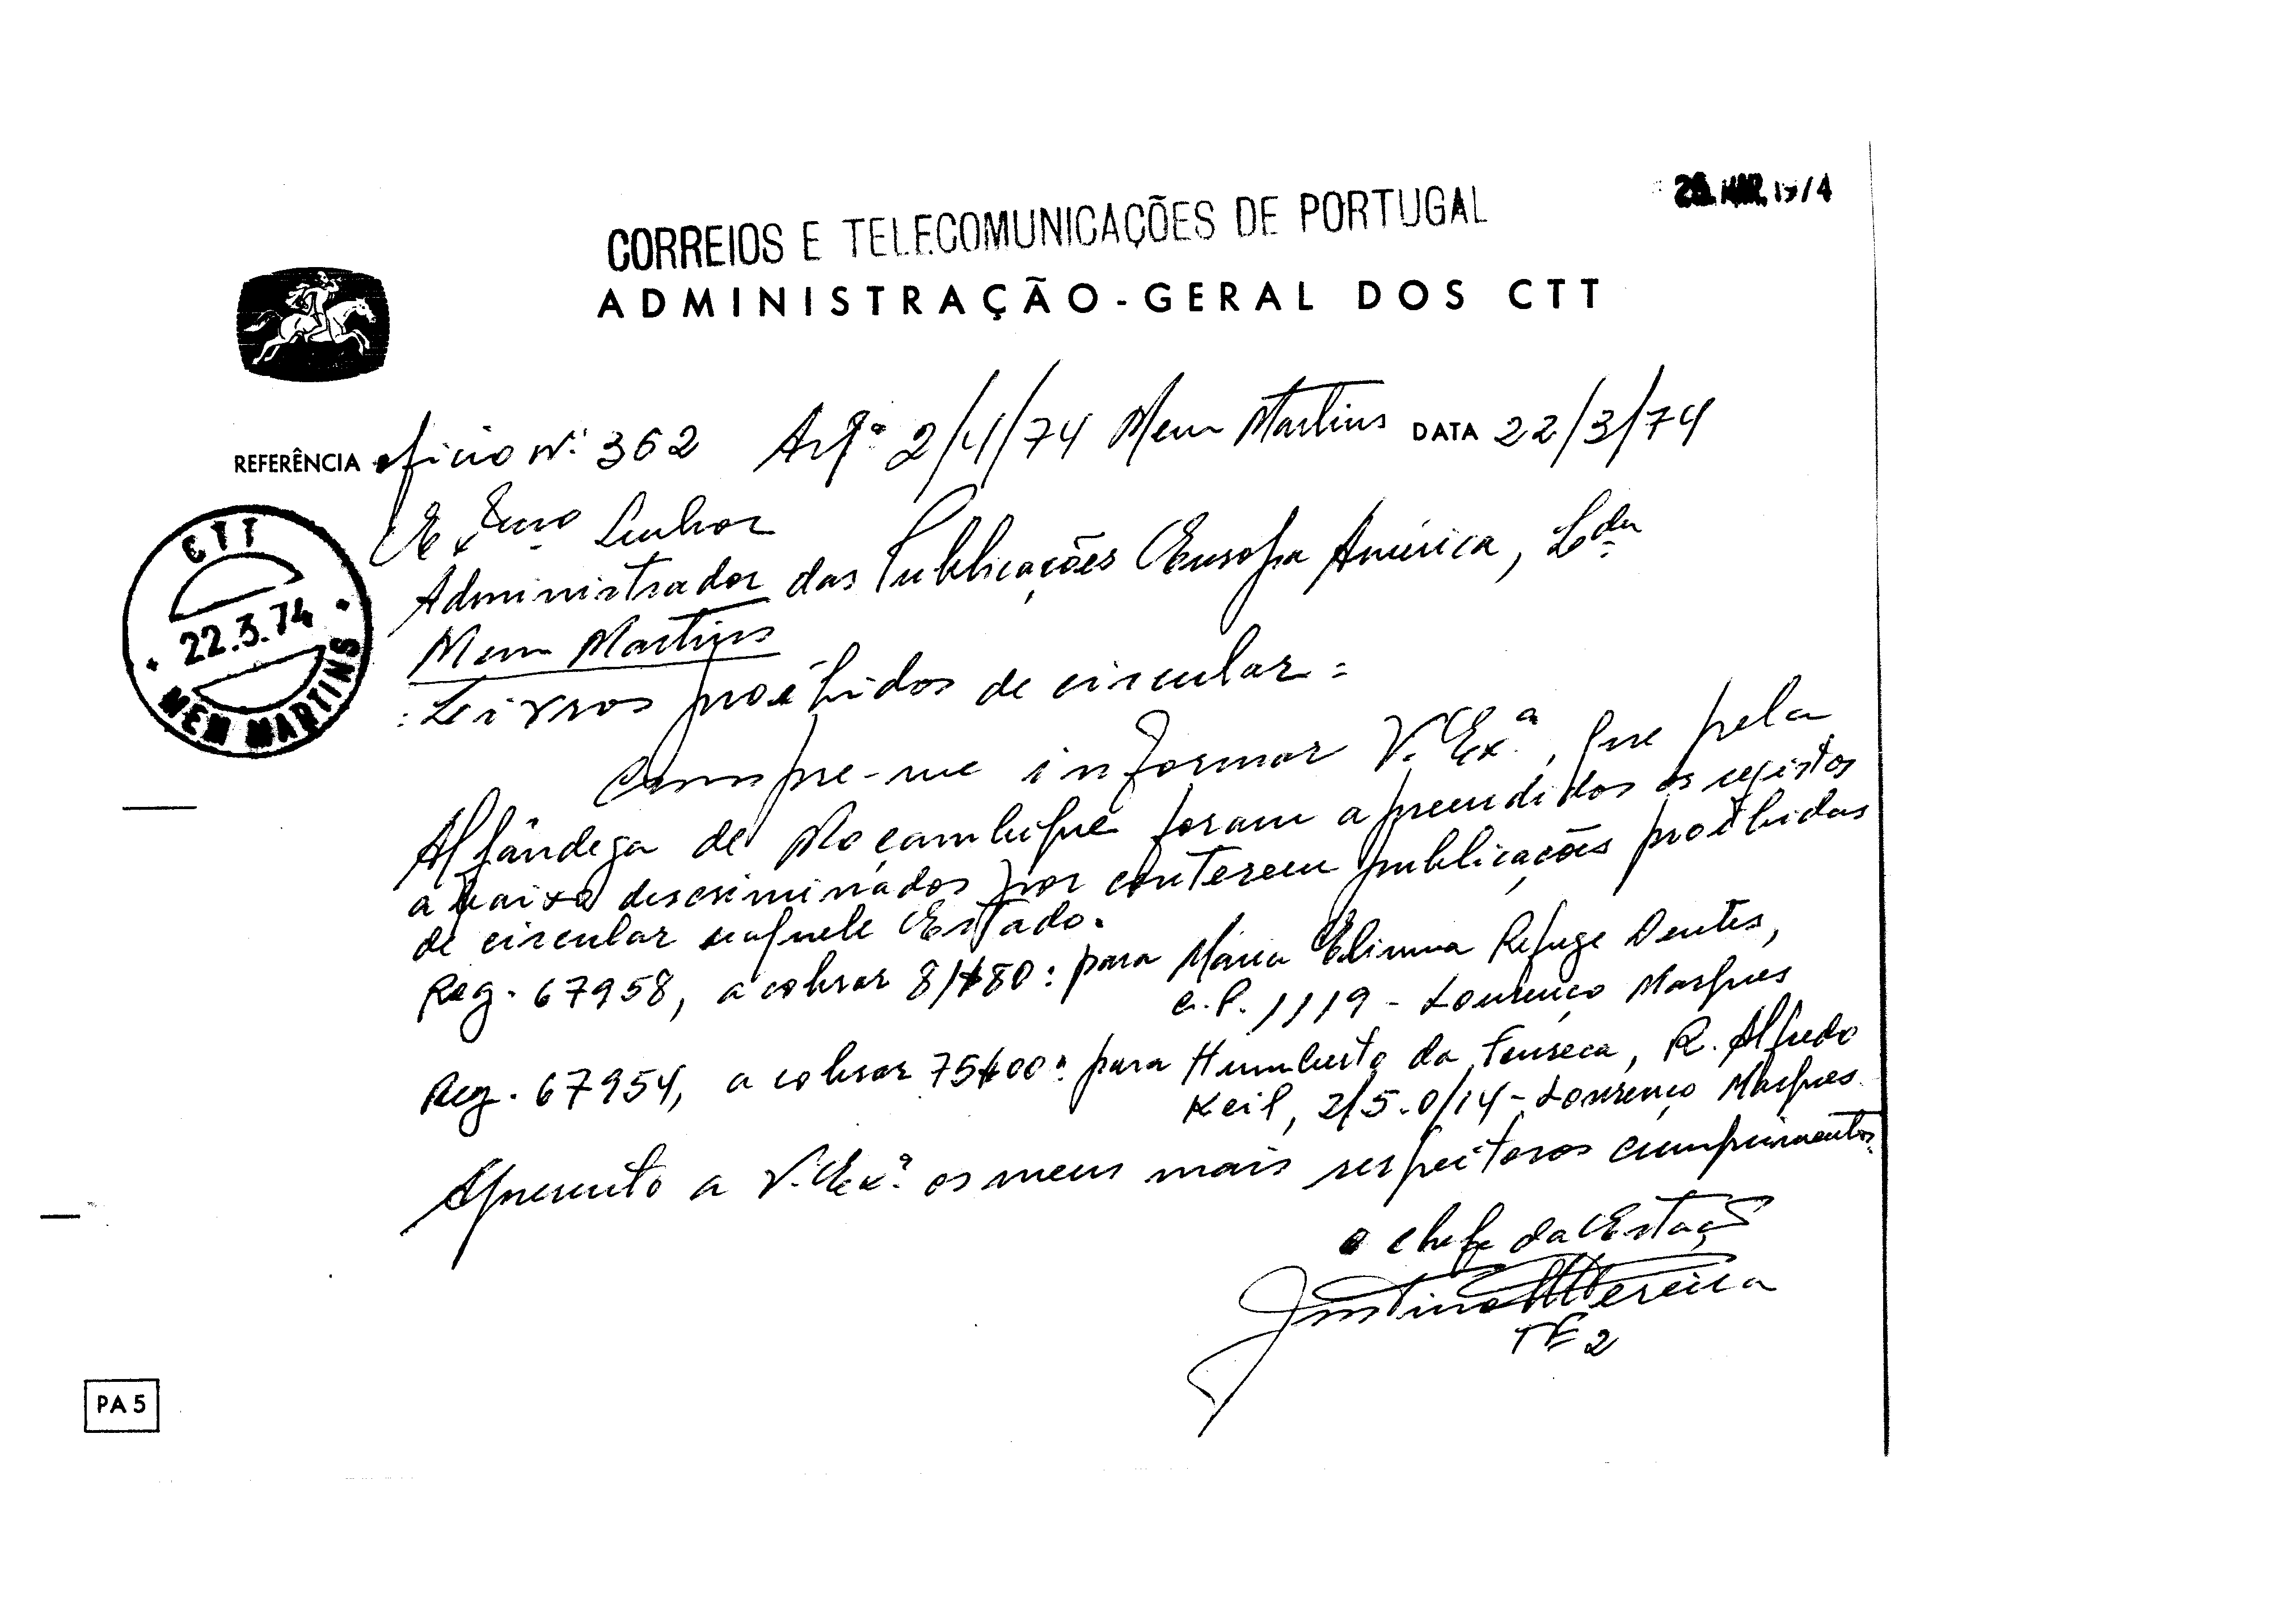 26. MAR. 1974
CORREIOS E TELECOMUNICAÇÕES DE PORTUGAL
ADMINISTRAÇÃO-GERAL DOS CTT
REFERÊNCIA ofício Nº 362 Arqº 2/4/74 Mem Martins DATA 22/3/74
CTT
22.3.74
MEM MARTINS
Exmo Senhor
Administrador das Publicações Europa América, Lda
Mem Martins
: Livros proíbidos de circular :
Cumpre-me informar V. Exª, que pela
Alfândega de Moçambique foram apreendidos os registos
abaixo descriminados por conterem publicações proíbidas
de circular naquele Estado.
Reg. 67958, a cobrar 81$80: para Maria Refuge Dentes,
C.P. 1119 - Lourenço Marques
Reg. 67954, a cobrar 75$00: para Humberto da Fonseca, R. Alfredo
Keil, 2/5.0/14 - Lourenço Marques
Apresento a V. Exª os meus mais respeitosos cumprimentos.
o chefe da Estação
Justino Pereira
PA 5